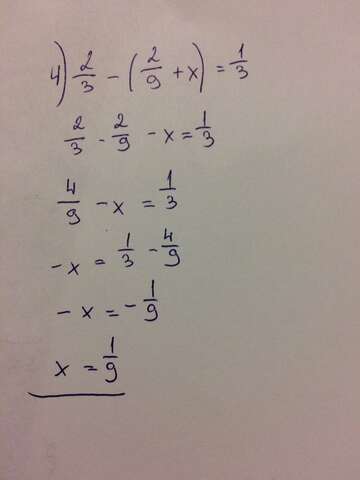 4) 2/3 - (2/9 + x) = 1/3
2/3 - 2/9 - x = 1/3
4/9 - x = 1/3
-x = 1/3 - 4/9
-x = -1/9
x = 1/9